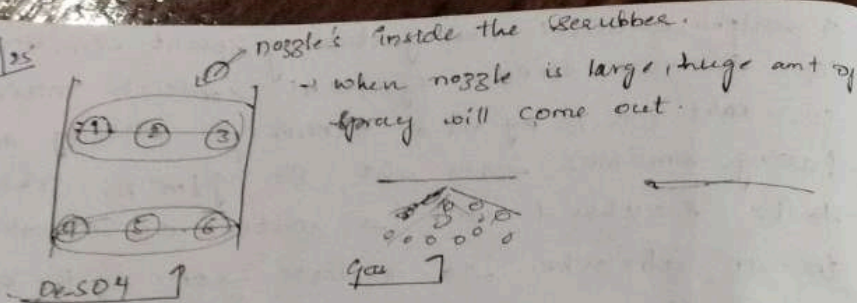 nozzle's inside the Scrubber.
→ when nozzle is large, huge amt of
spray will come out.
1 2 3
4 5 6
De-SO4
Gas